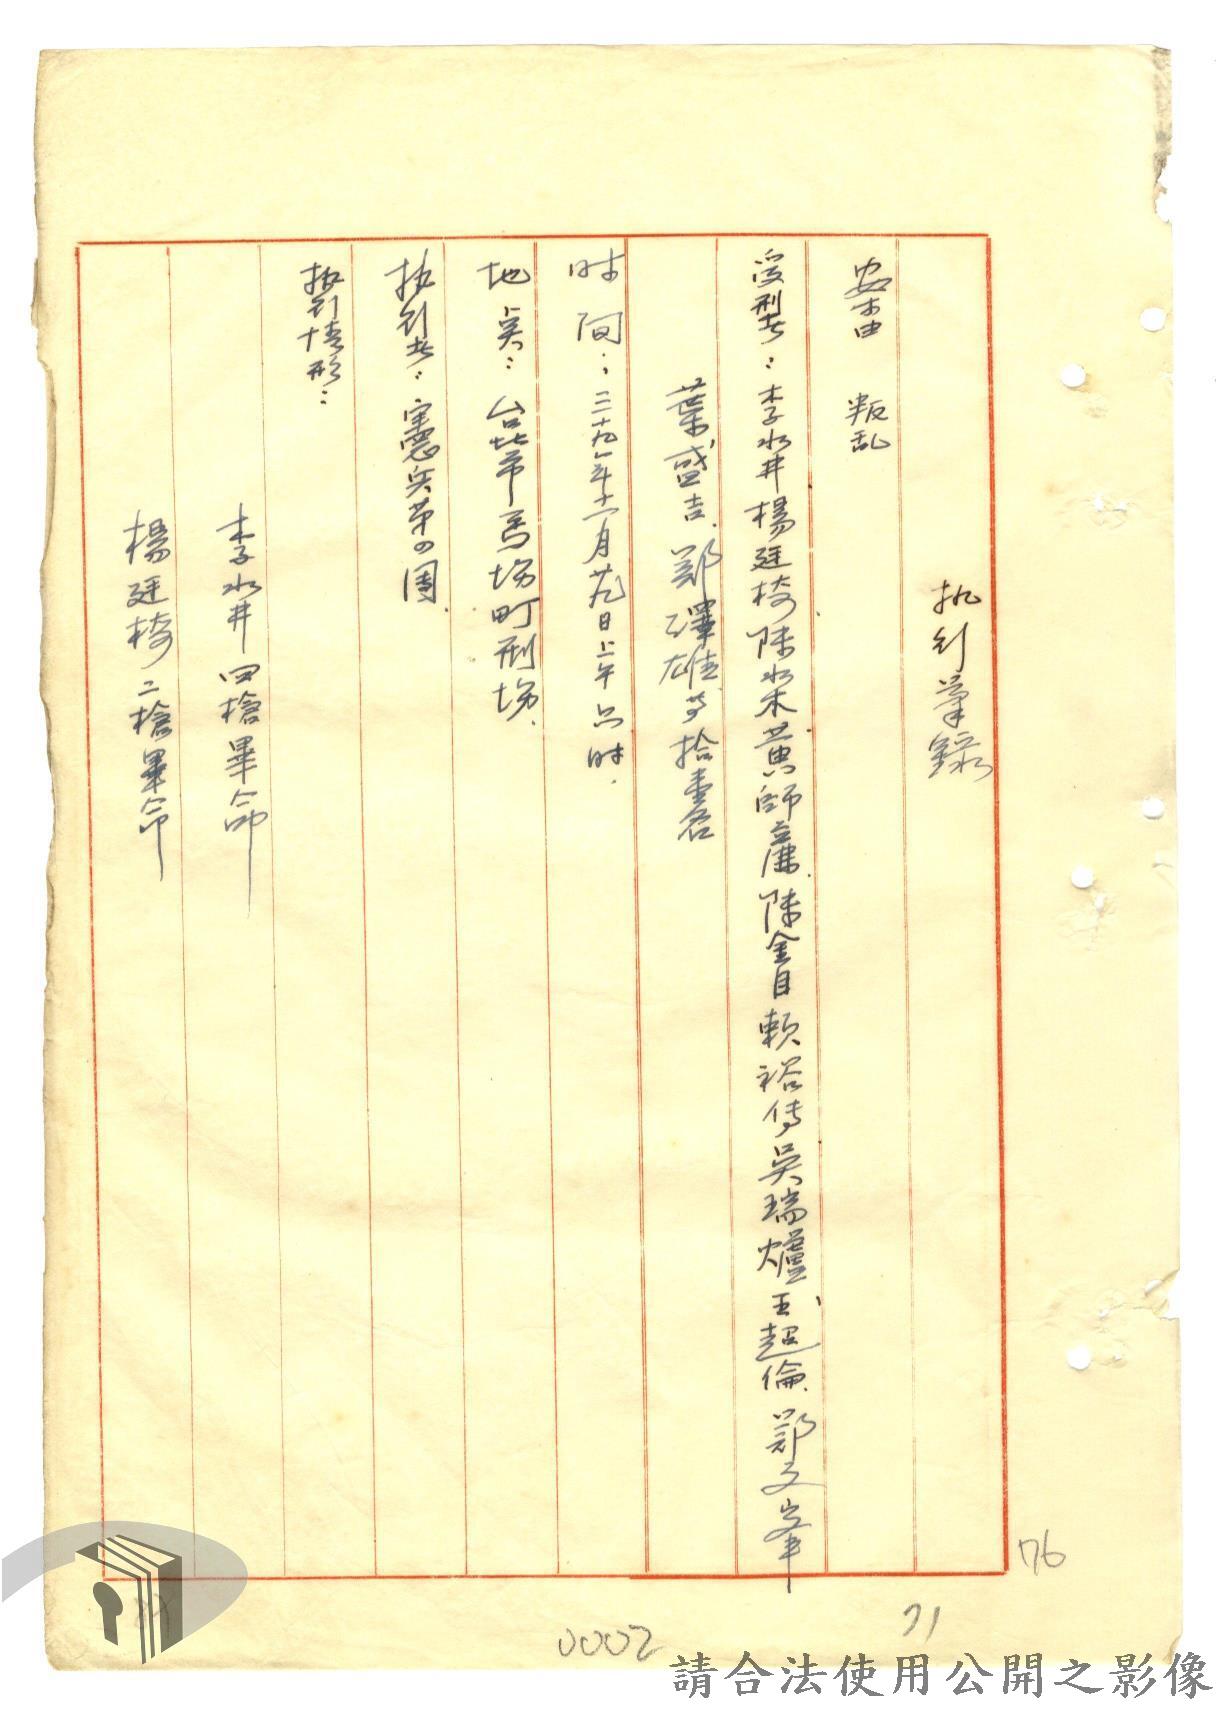 执行筆錄
案由 叛乱
受刑者：李水井楊廷椅陈水木黄師廉陈金目賴裕传吴瑞爐、王超倫、鄭文峯
葉盛吉、鄭澤雄、等拾壹名
时间：三十九年十一月廿九日上午六时.
地点：台北市馬场町刑场.
执行者：憲兵第四團.
执行情形：
李水井四槍畢命
楊廷椅二槍畢命
76
71
0002
請合法使用公開之影像